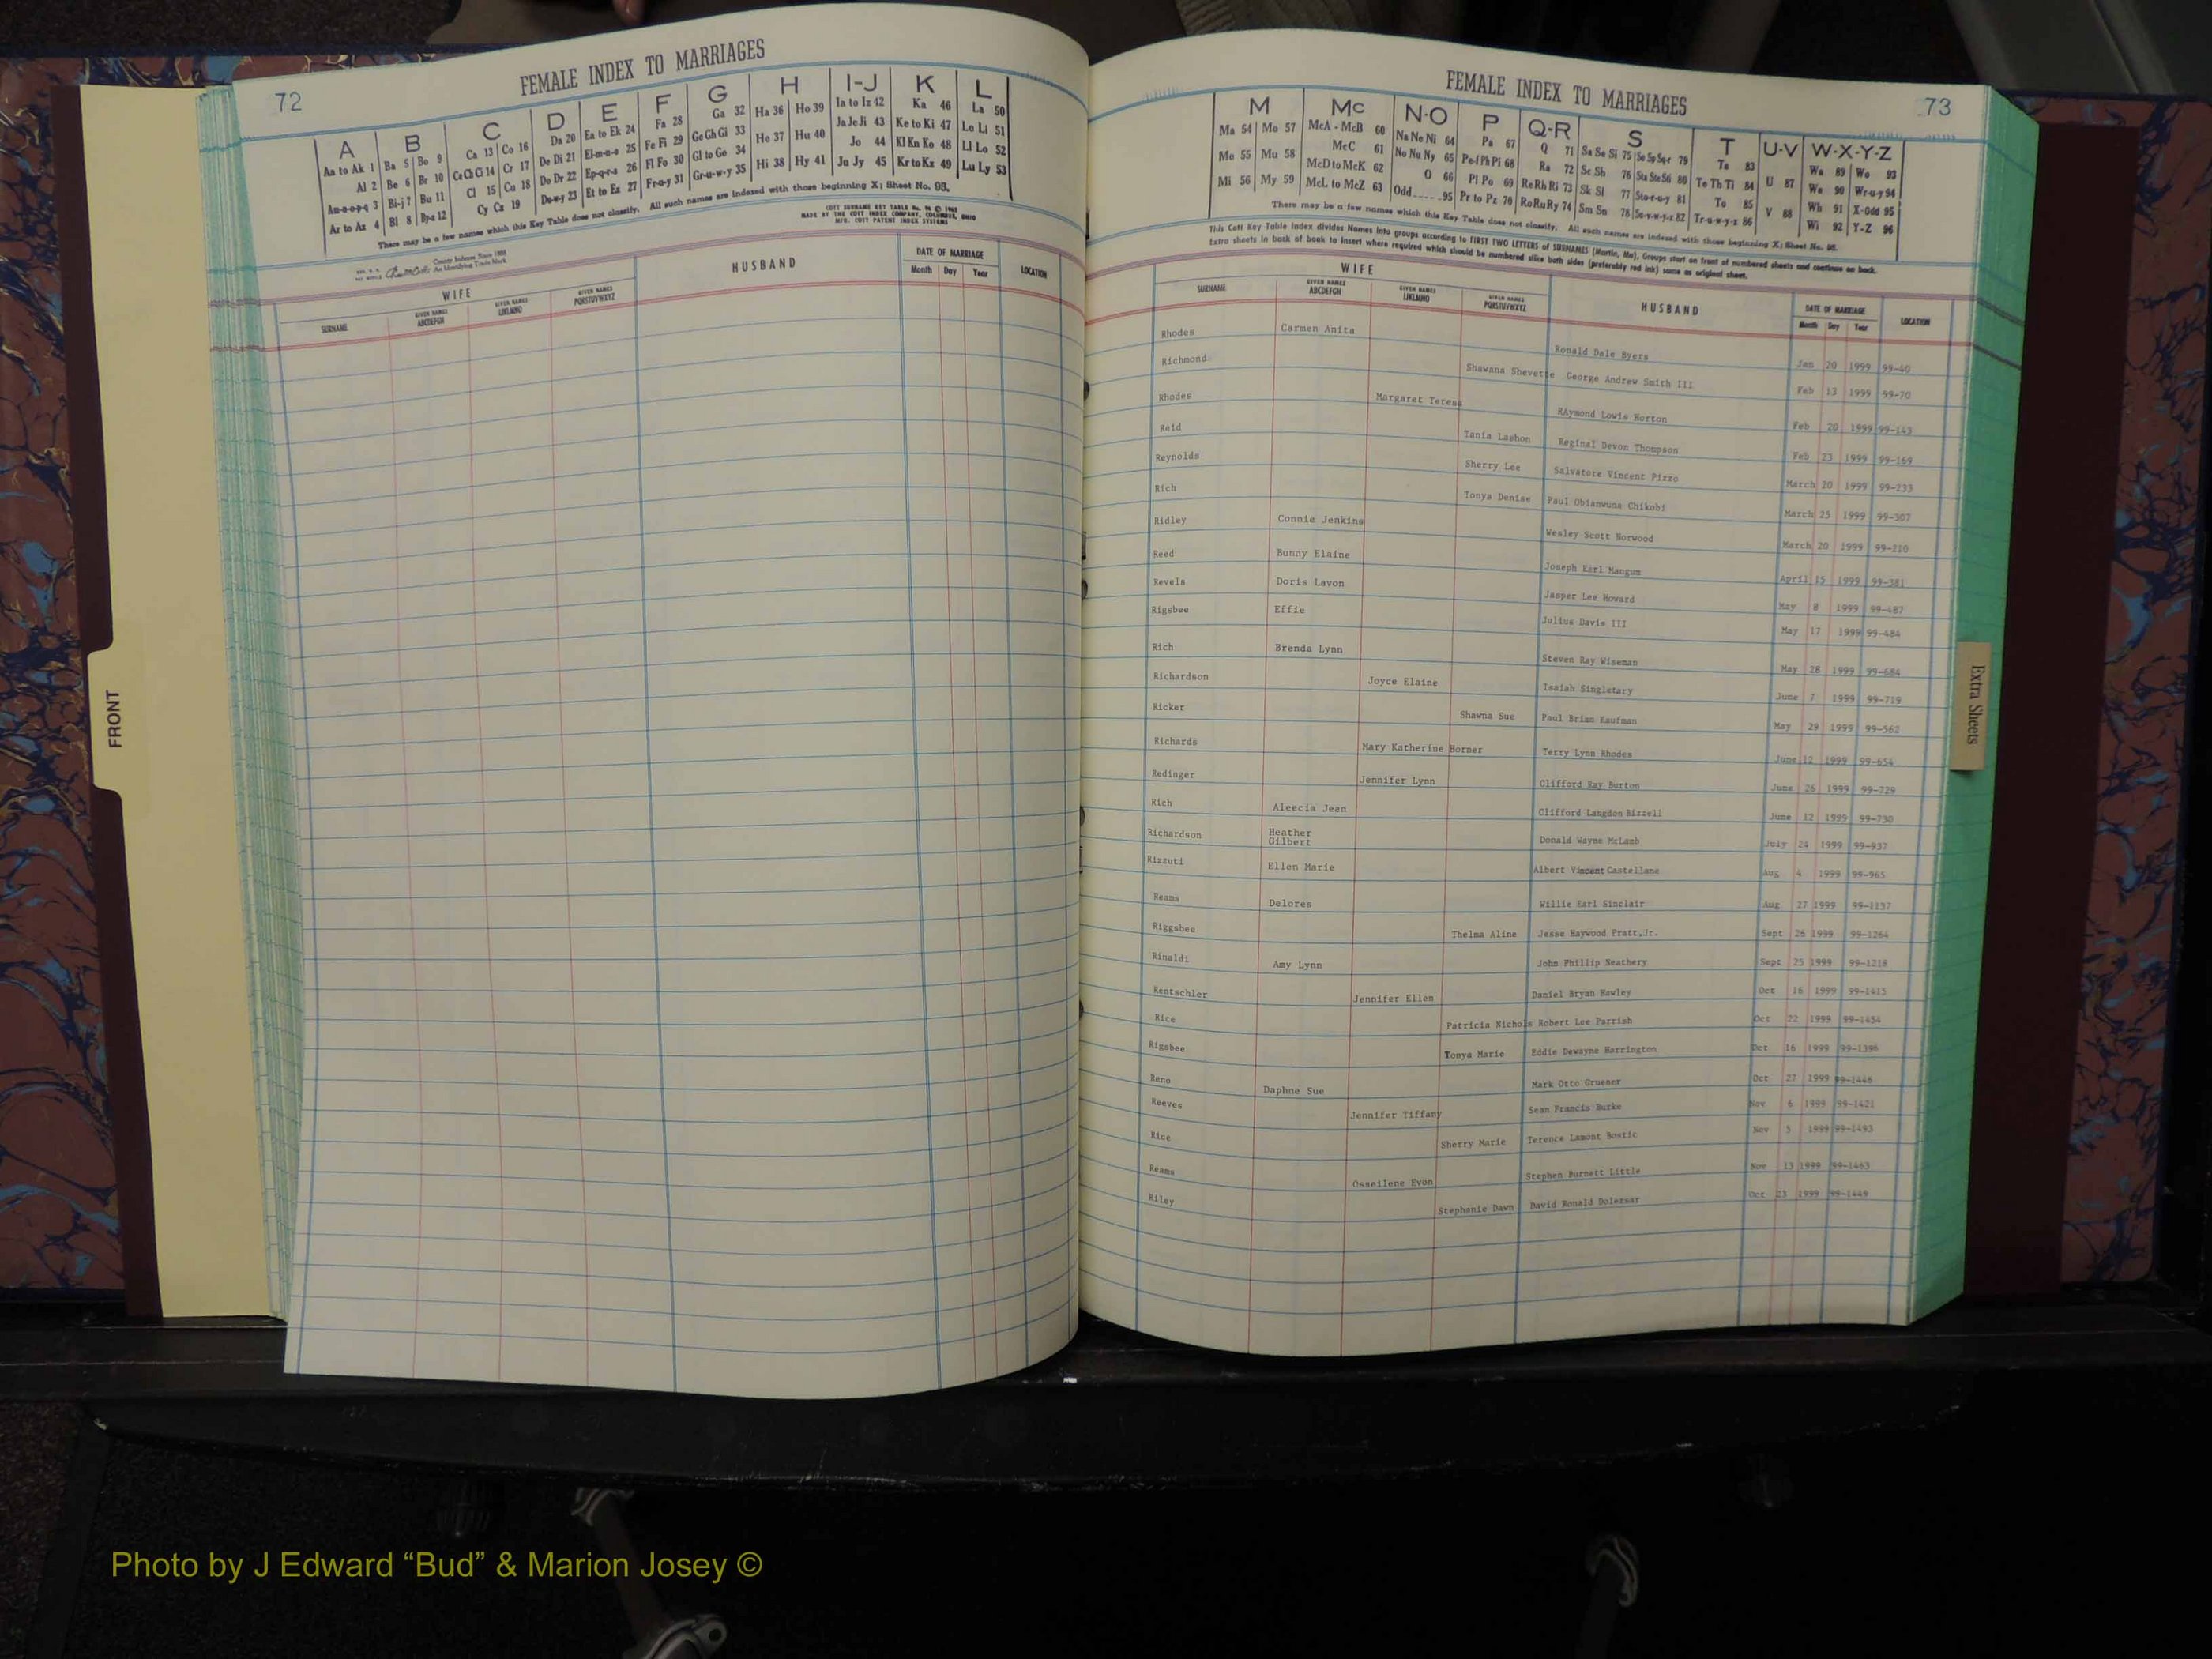 72
FEMALE INDEX TO MARRIAGES
A B C D E F G H I-J K L
Aa to Ak 1 Ba 5 Bo 9 Ca 13 Co 16 Da 20 Ea to Ek 24 Fa 28 Ga 32 Ha 36 Ho 39 Ia to Iz 42 Ka 46 La 50
Al 2 Be 6 Br 10 Ce Ch Ci 14 Cr 17 De Di 21 El-m-n-o 25 Fe Fi 29 Ge Gh Gi 33 He 37 Hu 40 Ja Je Ji 43 Ke to Ki 47 Le Li 51
Am-n-o-p-q 3 Bi-j 7 Bu 11 Cl 15 Cu 18 Do Dr 22 Ep-q-r-s 26 Fl Fo 30 Gl to Go 34 Hi 38 Hy 41 Jo 44 Kl Kn Ko 48 Ll Lo 52
Ar to Az 4 Bl 8 By-z 12 Cy Cz 19 Du-w-y 23 Et to Ez 27 Fr-u-y 31 Gr-u-w-y 35 Ju Jy 45 Kr to Kz 49 Lu Ly 53
There may be a few names which this Key Table does not classify. All such names are indexed with those beginning X; Sheet No. 95.
COTT SURNAME KEY TABLE
MADE BY THE COTT INDEX COMPANY, COLUMBUS, OHIO
MFR. COTT PATENT INDEX SYSTEMS
County Indexes Since 1888
An Identifying Trade Mark
WIFE HUSBAND DATE OF MARRIAGE LOCATION
SURNAME GIVEN NAMES ABCDEFGH GIVEN NAMES IJKLMNO GIVEN NAMES PQRSTUVWXYZ Month Day Year
FEMALE INDEX TO MARRIAGES
73
M Mc N-O P Q-R S T U-V W-X-Y-Z
Ma 54 Mo 57 McA - McB 60 Na Ne Ni 64 Pa 67 Q 71 Sa Se Si 75 So Sp Sq-r 79 Ta 83 Wa 89 Wo 93
Me 55 Mu 58 McC 61 No Nu Ny 65 Pe-f Ph Pi 68 Ra 72 Sc Sh 76 Sta Ste Sti 80 Te Th Ti 84 U 87 We 90 Wr-u-y 94
Mi 56 My 59 McD to McK 62 O 66 Pl Po 69 Re Rh Ri 73 Sk Sl 77 Sto-r-u-y 81 To 85 V 88 Wh 91 X-Odd 95
McL to McZ 63 Odd 95 Pr to Pz 70 Ro Ru Ry 74 Sm Sn 78 Su-v-w-y-z 82 Tr-u-w-y-z 86 Wi 92 Y-Z 96
There may be a few names which this Key Table does not classify. All such names are indexed with those beginning X; Sheet No. 95.
This Cott Key Table Index divides Names into groups according to FIRST TWO LETTERS of SURNAMES (Martin, Ma), Groups start on front of numbered sheets and continue on back.
Extra sheets in back of book to insert where required which should be numbered alike both sides (preferably red ink) same as original sheet.
WIFE HUSBAND DATE OF MARRIAGE LOCATION
SURNAME GIVEN NAMES ABCDEFGH GIVEN NAMES IJKLMNO GIVEN NAMES PQRSTUVWXYZ Month Day Year
Rhodes Carmen Anita Ronald Dale Byers Jan 20 1999 99-40
Richmond Shawana Shevette George Andrew Smith III Feb 13 1999 99-70
Rhodes Margaret Teresa RAymond Lowis Horton Feb 20 1999 99-143
Reid Tania Lashon Reginal Devon Thompson Feb 23 1999 99-169
Reynolds Sherry Lee Salvatore Vincent Pizzo March 20 1999 99-233
Rich Tonya Denise Paul Obianwuna Chikobi March 25 1999 99-307
Ridley Connie Jenkins Wesley Scott Norwood March 20 1999 99-210
Reed Bunny Elaine Joseph Earl Mangum April 15 1999 99-381
Revels Doris Lavon Jasper Lee Howard May 8 1999 99-487
Rigsbee Effie Julius Davis III May 17 1999 99-484
Rich Brenda Lynn Steven Ray Wiseman May 28 1999 99-684
Richardson Joyce Elaine Isaiah Singletary June 7 1999 99-719
Ricker Shawna Sue Paul Brian Kaufman May 29 1999 99-562
Richards Mary Katherine Horner Terry Lynn Rhodes June 12 1999 99-654
Redinger Jennifer Lynn Clifford Ray Burton June 26 1999 99-729
Rich Aleecia Jean Clifford Langdon Bizzell June 12 1999 99-730
Richardson Heather Gilbert Donald Wayne McLamb July 24 1999 99-937
Rizzuti Ellen Marie Albert Vincent Castellano Aug 4 1999 99-965
Reams Delores Willie Earl Sinclair Aug 27 1999 99-1137
Riggsbee Thelma Aline Jesse Haywood Pratt,Jr. Sept 26 1999 99-1264
Rinaldi Amy Lynn John Phillip Neathery Sept 25 1999 99-1218
Rentschler Jennifer Ellen Daniel Bryan Hawley Oct 16 1999 99-1415
Rice Patricia Nichols Robert Lee Parrish Oct 22 1999 99-1454
Rigsbee Tonya Marie Eddie Dewayne Harrington Oct 16 1999 99-1396
Reno Daphne Sue Mark Otto Gruener Oct 27 1999 99-1446
Reeves Jennifer Tiffany Sean Francis Burke Nov 6 1999 99-1421
Rice Sherry Marie Terence Lamont Bostic Nov 5 1999 99-1493
Reams Osseilene Evon Stephen Burnett Little Nov 13 1999 99-1463
Riley Stephanie Dawn David Ronald Dolezsar Oct 23 1999 99-1449
FRONT
Extra Sheets
Photo by J Edward “Bud” & Marion Josey ©